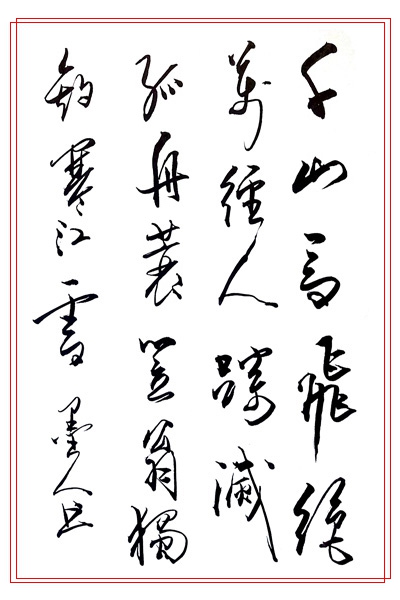 千山鳥飛絕
萬徑人踪滅
孤舟蓑笠翁獨
釣寒江雪 墨人书